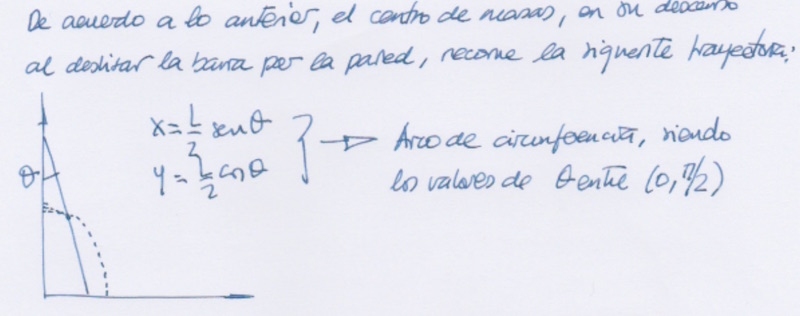 De acuerdo a lo anterior, el centro de masas, en su descenso
al deslizar la barra por la pared, recorre la siguiente trayectoria:
x = L/2 sen θ
y = L/2 cos θ
Arco de circunferencia, siendo
los valores de θ entre (0, π/2)
θ